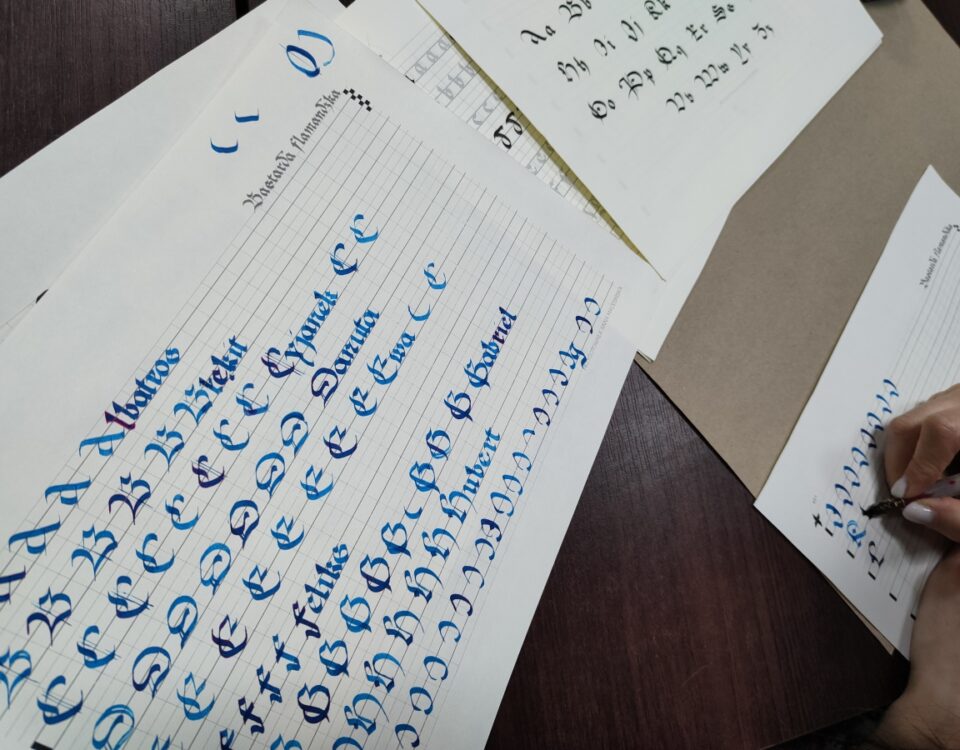 Bastarda flamandzka
A A A A Albatros
B B B B B Błękit
C C C C C C C C Cyjanek C C
D D D D D D D Danuta
E E E E E E E E Ewa E
F F F F Feliks
G G G G G G G G G Gabriel
H H H H H H Hubert
Aa Bb
Hh Ii Jj Kk
Oo Pp Qq Rr Ss
Vv Ww Yy Zz
Bastarda flamandzka